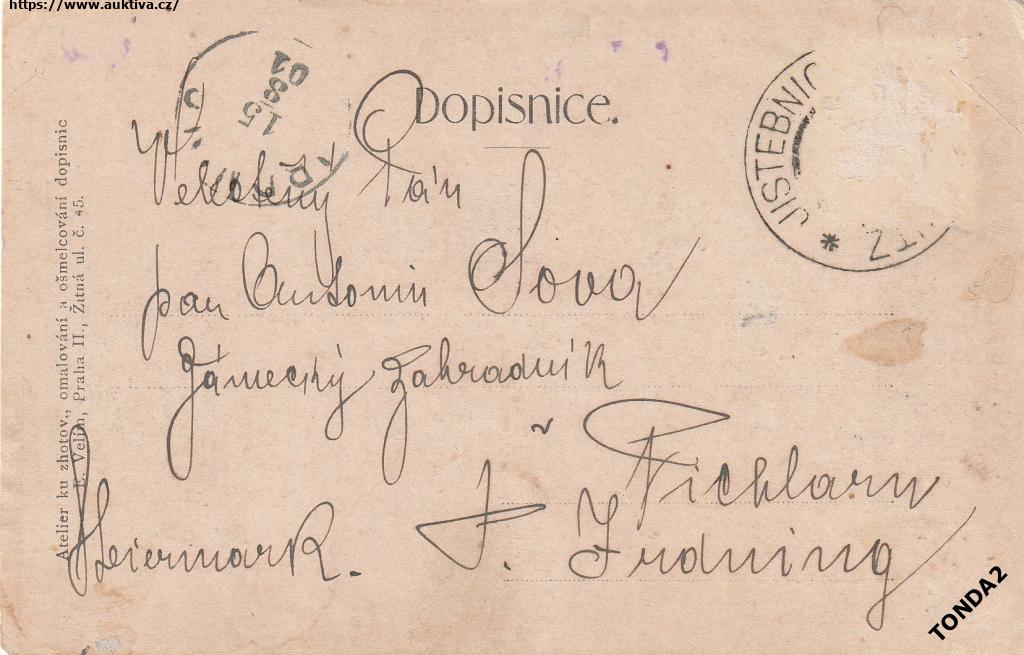 https://www.auktiva.cz/
Dopisnice.
15
8
01
JISTEBNIC
TZ
*
Atelier ku zhotov., omalování a ošmelcování dopisnic
E. Velím, Praha II., Žitná ul. č. 45.
Pán
pan Antonin Sova
Zámecký Zahradník
v Pichlarn
P. Irdning
Steiermark.
TONDA2